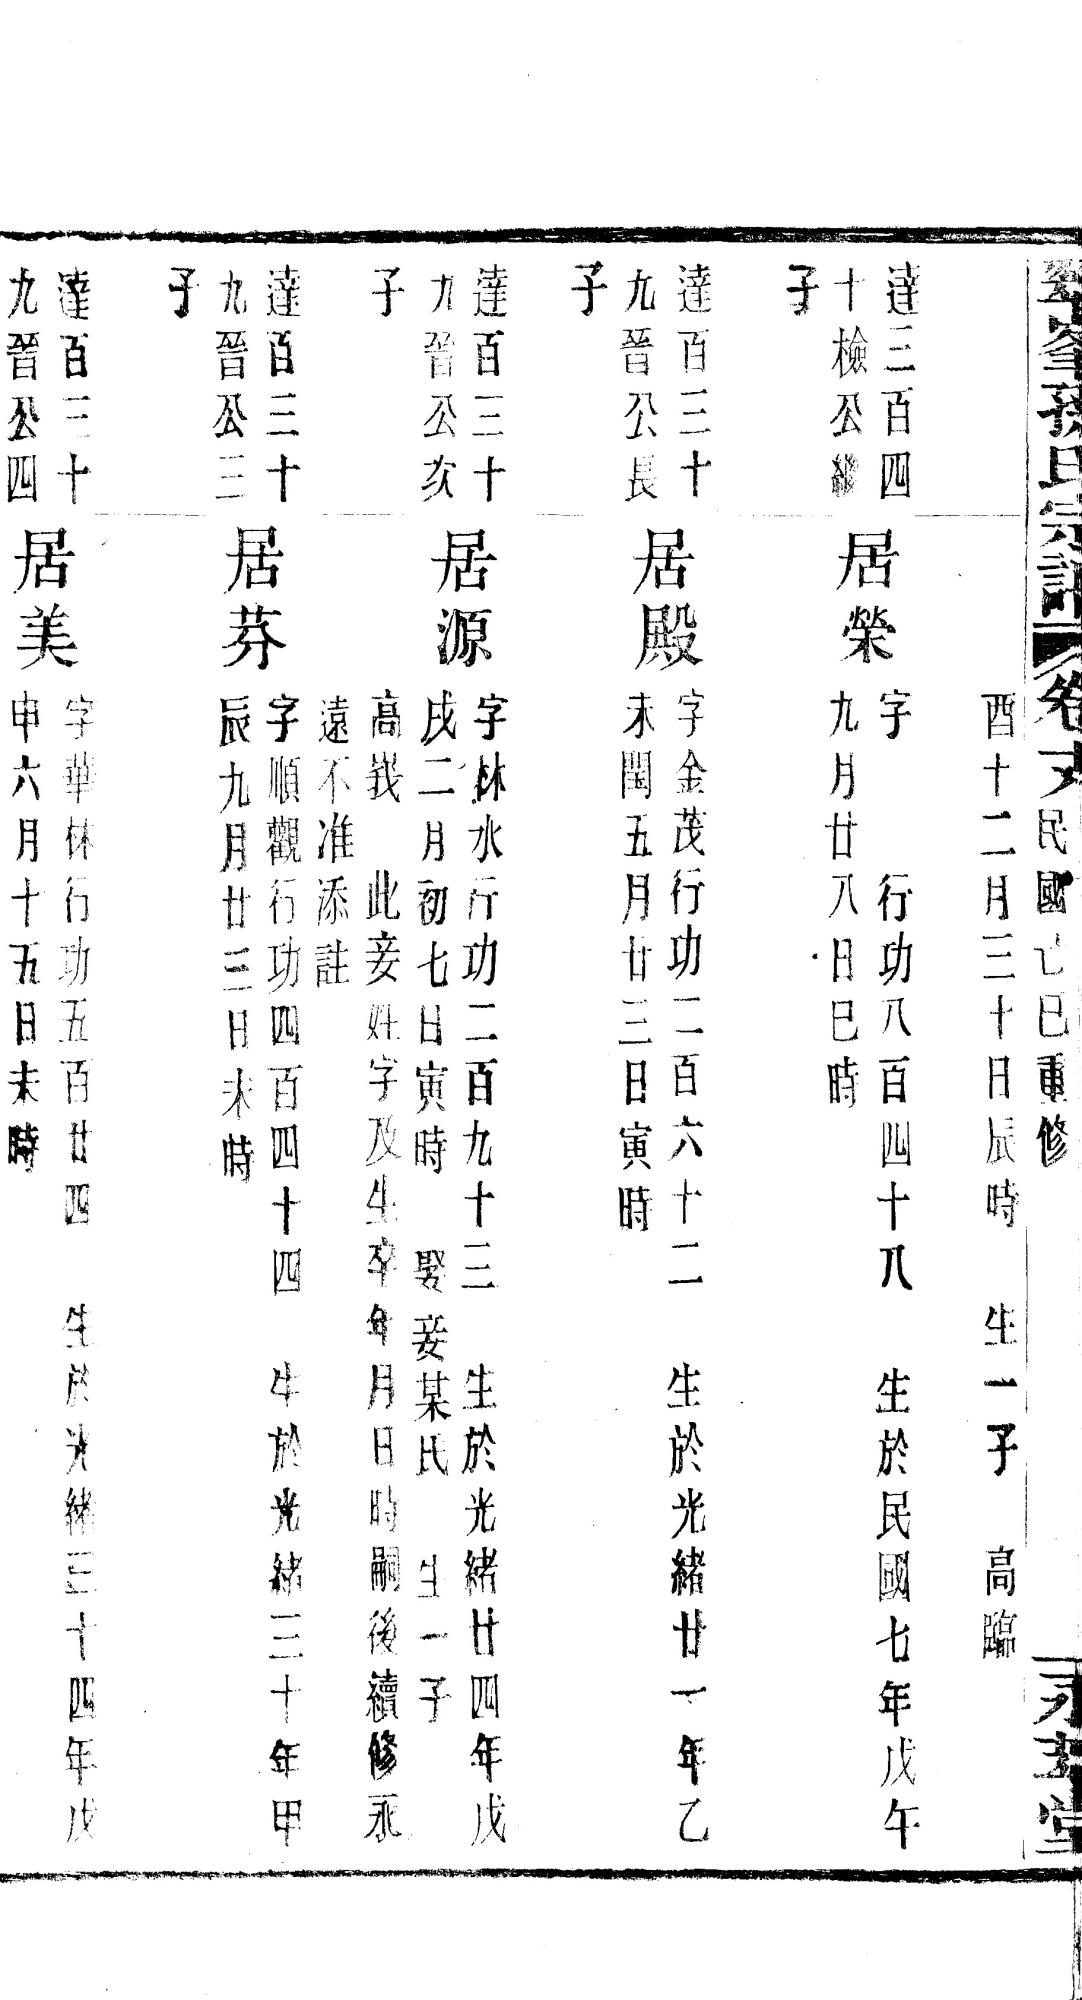 峯孫氏宗譜 卷 民國 巳重修 堂
酉十二月三十日辰時 生一子 高臨
達三百四
十檢公繼
子
居榮
字 行功八百四十八 生於民國七年戊午
九月廿八日巳時
達百三十
九晉公長
子
居殿
字金茂行功二百六十二 生於光緒廿一年乙
未閏五月廿三日寅時
達百三十
九晉公次
子
居源
字林水行功二百九十三 生於光緒廿四年戊
戌二月初七日寅時 娶妾某氏 生一子
高峩 此妾姓字及生卒年月日時嗣後續修永
遠不准添註
達百三十
九晉公三
子
居芬
字順觀行功四百四十四 生於光緒三十年甲
辰九月廿三日未時
達百三十
九晉公四
居美
字華林行功五百廿四 生於光緒三十四年戊
申六月十五日未時